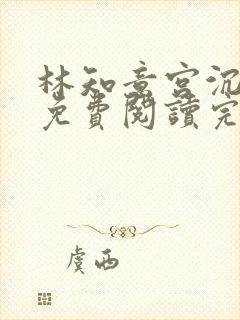 林知意宮沉
免費閱讀完
虞西